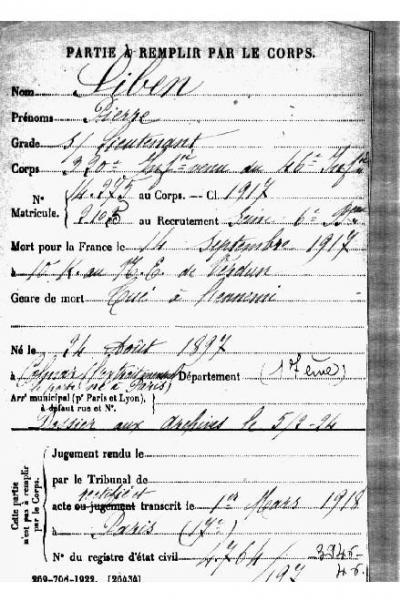 PARTIE À REMPLIR PAR LE CORPS.
Nom Liben
Prénoms Pierre
Grade s/ Lieutenant
Corps 330e Inf^rie venu du 46e Inf^ie
N° Matricule. { 14.275 au Corps. — Cl. 1917
2105 au Recrutement Seine 6e Bau
Mort pour la France le 14 septembre 1917
à 10 K. au N.E. de Verdun
Genre de mort Tué à l'ennemi
Né le 24 Août 1897
à Colmar Département (17ème)
à Paris)
Arr^t municipal (p^r Paris et Lyon),
à défaut rue et N°.
Dossier aux archives le 5/2-24
Cette partie n'est pas à remplir par le Corps.
Jugement rendu le
par le Tribunal de
rectifié et
acte ou jugement transcrit le 1er Mars 1918
à Paris (17e)
N° du registre d'état civil 4764/
197
269-708-1922. [26434]